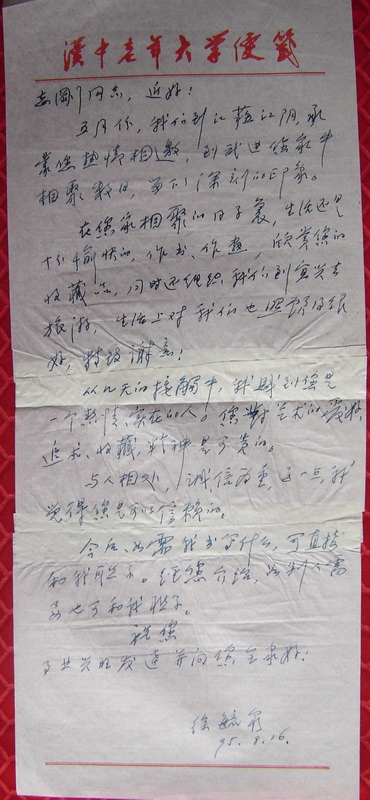 汉中老年大学便笺
志刚同志，近好！
五月份，我们到江苏江阴，承
蒙您热情相邀，到武进您家中
相聚数日，留下了深刻的印象。
在您家相聚的日子里，生活还是
十分愉快的，作书、作画，欣赏您的
收藏品，同时还组织我们到宜兴去
旅游，生活上对我们也照顾得很
好，特致谢意！
从几天的接触中，我感到您是
一个热情实在的人。您对艺术的爱好、
追求、收藏，精神是可贵的。
与人相处，诚信为重这一点，我
觉得您是可以信赖的。
今后，如需我书写什么，可直接
和我联系。经您介绍，如别人需
要也可和我联系。
祝您
事业兴旺发达并向您全家好！
徐毓泉
95.9.16.